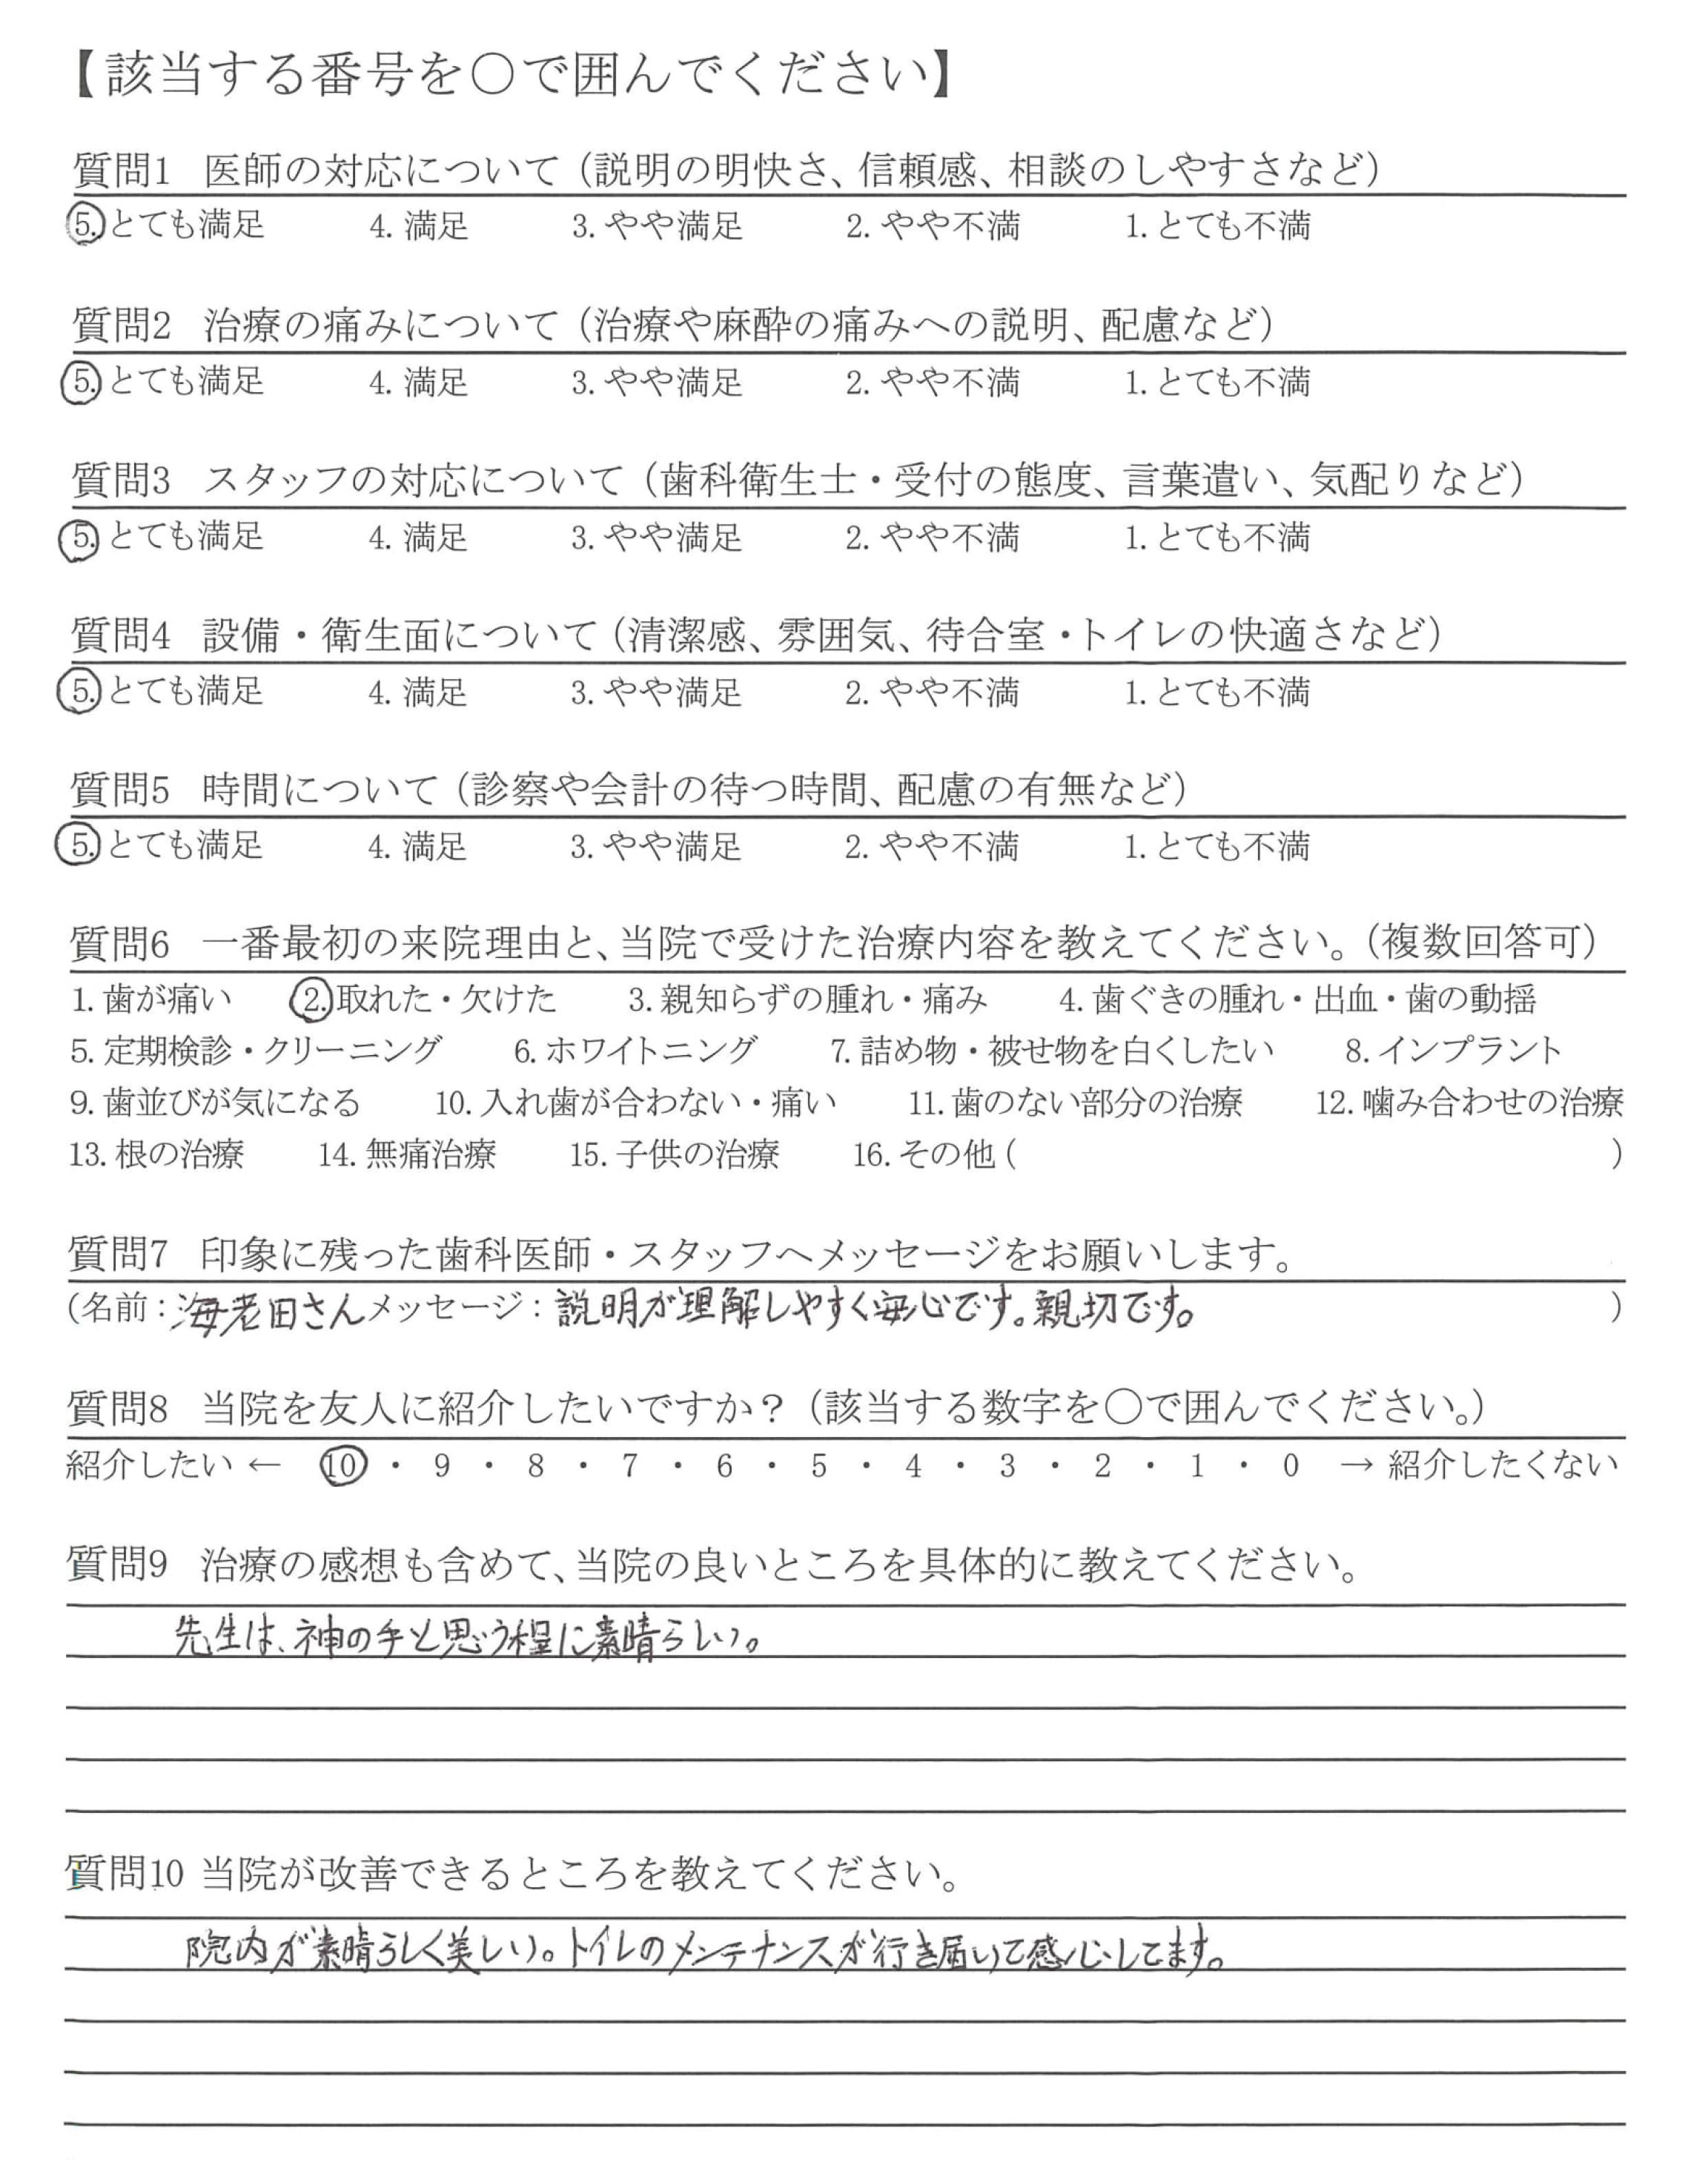 【該当する番号を〇で囲んでください】
質問1 医師の対応について（説明の明快さ、信頼感、相談のしやすさなど）
5.とても満足 4.満足 3.やや満足 2.やや不満 1.とても不満
質問2 治療の痛みについて（治療や麻酔の痛みへの説明、配慮など）
5.とても満足 4.満足 3.やや満足 2.やや不満 1.とても不満
質問3 スタッフの対応について（歯科衛生士・受付の態度、言葉遣い、気配りなど）
5.とても満足 4.満足 3.やや満足 2.やや不満 1.とても不満
質問4 設備・衛生面について（清潔感、雰囲気、待合室・トイレの快適さなど）
5.とても満足 4.満足 3.やや満足 2.やや不満 1.とても不満
質問5 時間について（診察や会計の待つ時間、配慮の有無など）
5.とても満足 4.満足 3.やや満足 2.やや不満 1.とても不満
質問6 一番最初の来院理由と、当院で受けた治療内容を教えてください。（複数回答可）
1.歯が痛い 2.取れた・欠けた 3.親知らずの腫れ・痛み 4.歯ぐきの腫れ・出血・歯の動揺
5.定期検診・クリーニング 6.ホワイトニング 7.詰め物・被せ物を白くしたい 8.インプラント
9.歯並びが気になる 10.入れ歯が合わない・痛い 11.歯のない部分の治療 12.噛み合わせの治療
13.根の治療 14.無痛治療 15.子供の治療 16.その他（ ）
質問7 印象に残った歯科医師・スタッフへメッセージをお願いします。
（名前：海老田さんメッセージ：説明が理解しやすく安心です。親切です。）
質問8 当院を友人に紹介したいですか？（該当する数字を〇で囲んでください。）
紹介したい ← 10 ・ 9 ・ 8 ・ 7 ・ 6 ・ 5 ・ 4 ・ 3 ・ 2 ・ 1 ・ 0 → 紹介したくない
質問9 治療の感想も含めて、当院の良いところを具体的に教えてください。
先生は、神の手と思う程に素晴らしい。
質問10 当院が改善できるところを教えてください。
院内が素晴らしく美しい。トイレのメンテナンスが行き届いて感心してます。